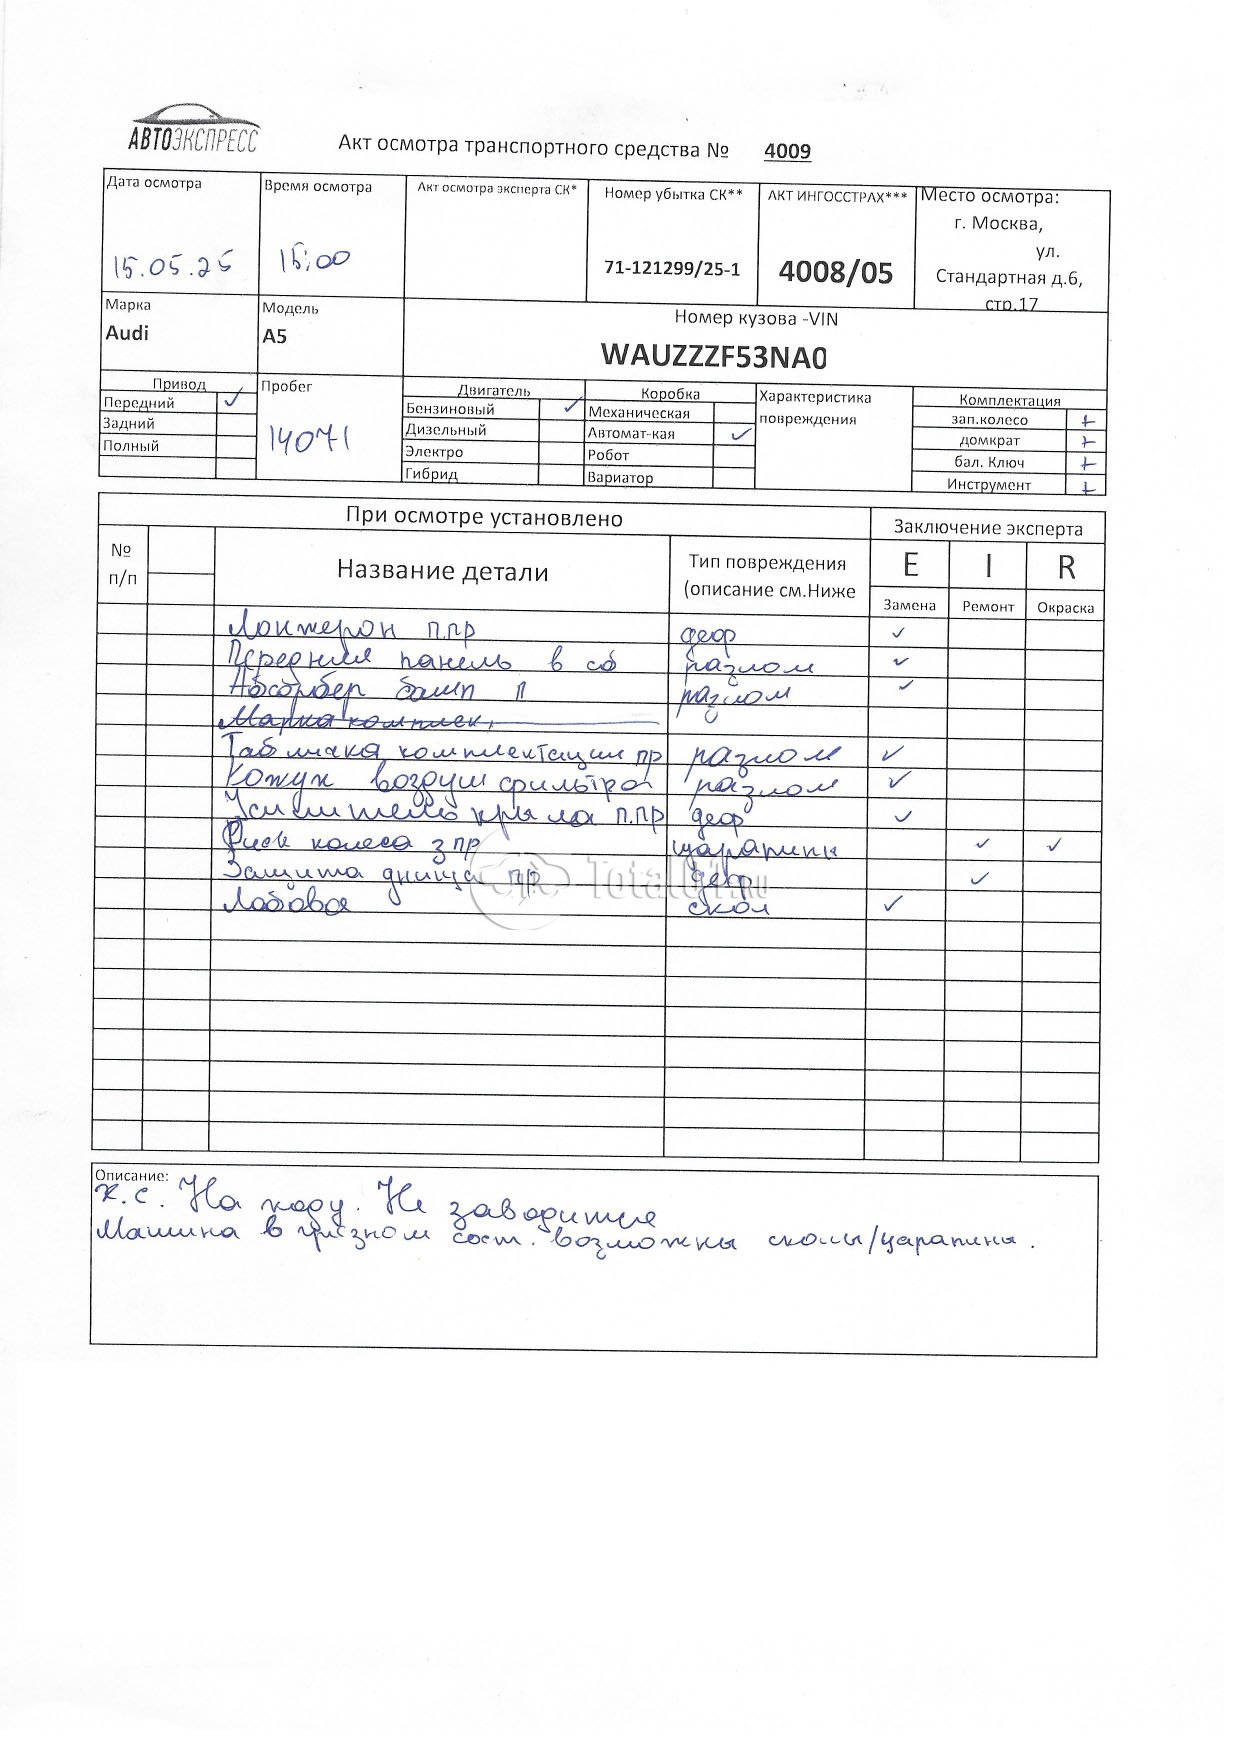 АВТОЭКСПРЕСС
Акт осмотра транспортного средства № 4009
Дата осмотра
15.05.25
Время осмотра
15:00
Акт осмотра эксперта СК*
Номер убытка СК**
71-121299/25-1
АКТ ИНГОССТРАХ***
4008/05
Место осмотра:
г. Москва,
ул.
Стандартная д.6,
стр.17
Марка
Audi
Модель
A5
Номер кузова -VIN
WAUZZZF53NA0
Привод
Передний ✓
Задний
Полный
Пробег
14071
Двигатель
Бензиновый ✓
Дизельный
Электро
Гибрид
Коробка
Механическая
Автомат-кая ✓
Робот
Вариатор
Характеристика
повреждения
Комплектация
зап.колесо +
домкрат +
бал. Ключ +
Инструмент +
При осмотре установлено
Заключение эксперта
№
п/п
Название детали
Тип повреждения
(описание см.Ниже
E I R
Замена Ремонт Окраска
Лонжерон п.пр деф ✓
Передняя панель в сб разлом ✓
Абсорбер бамп п разлом ✓
Марка комплек.
Табличка комплектации пр разлом ✓
Кожух воздуш фильтра разлом ✓
Усилитель крыла п.пр деф ✓
Диск колеса з пр царапины ✓ ✓
Защита днища пр. деф ✓
Лобовое скол ✓
Total01.RU
Описание:
х.с. На ходу. Не заводится
Машина в грязном сост. возможны сколы/царапины.